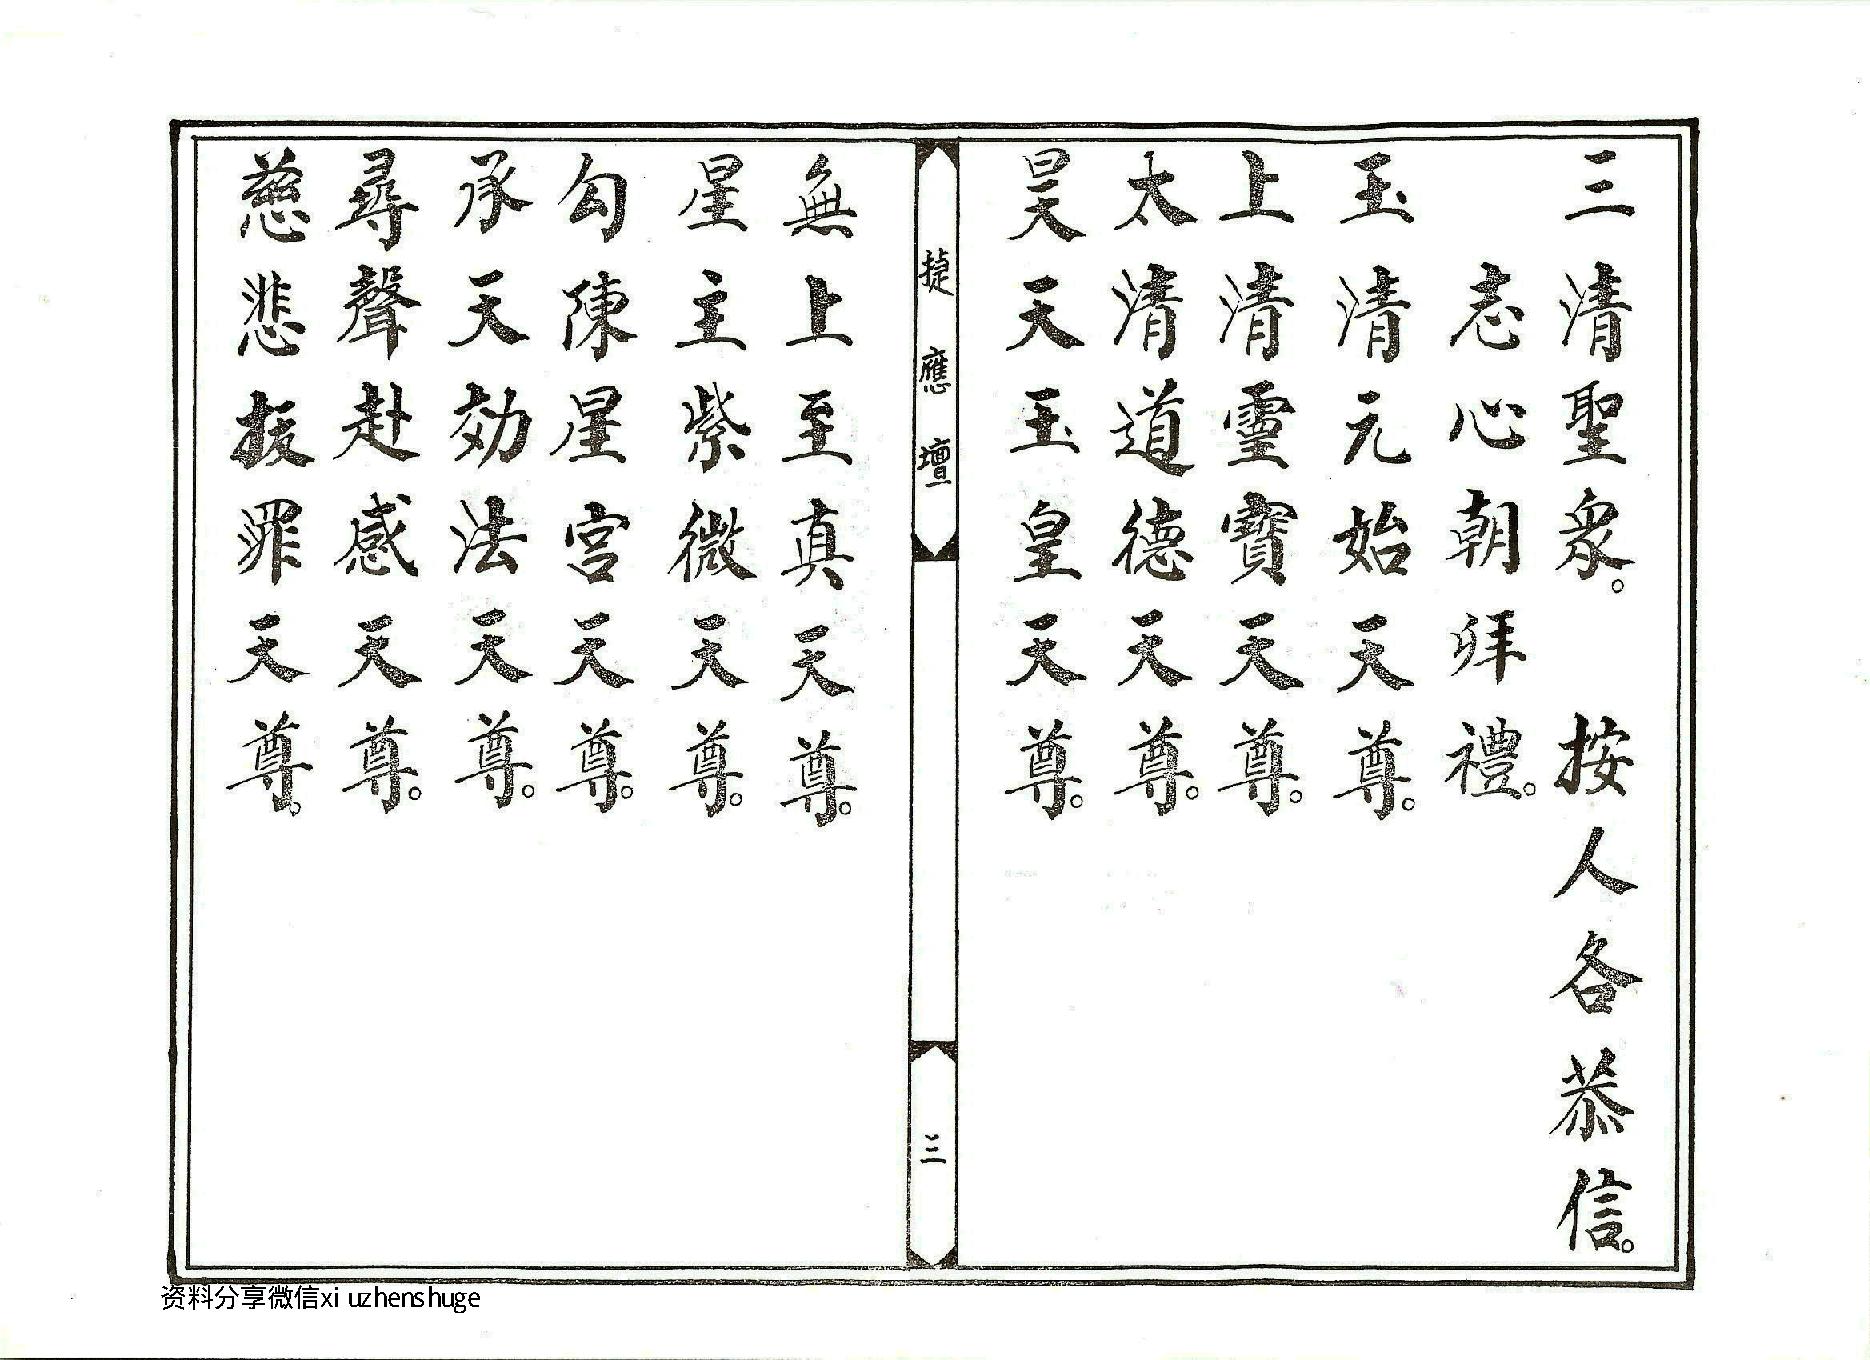 三清聖衆。 按人各恭信。
志心朝拜禮。
玉清元始天尊。
上清靈寶天尊。
太清道德天尊。
昊天玉皇天尊。
捷應壇
三
無上至真天尊。
星主紫微天尊。
勾陳星宮天尊。
承天効法天尊。
尋聲赴感天尊。
慈悲拔罪天尊。
资料分享微信xi uzhenshuge